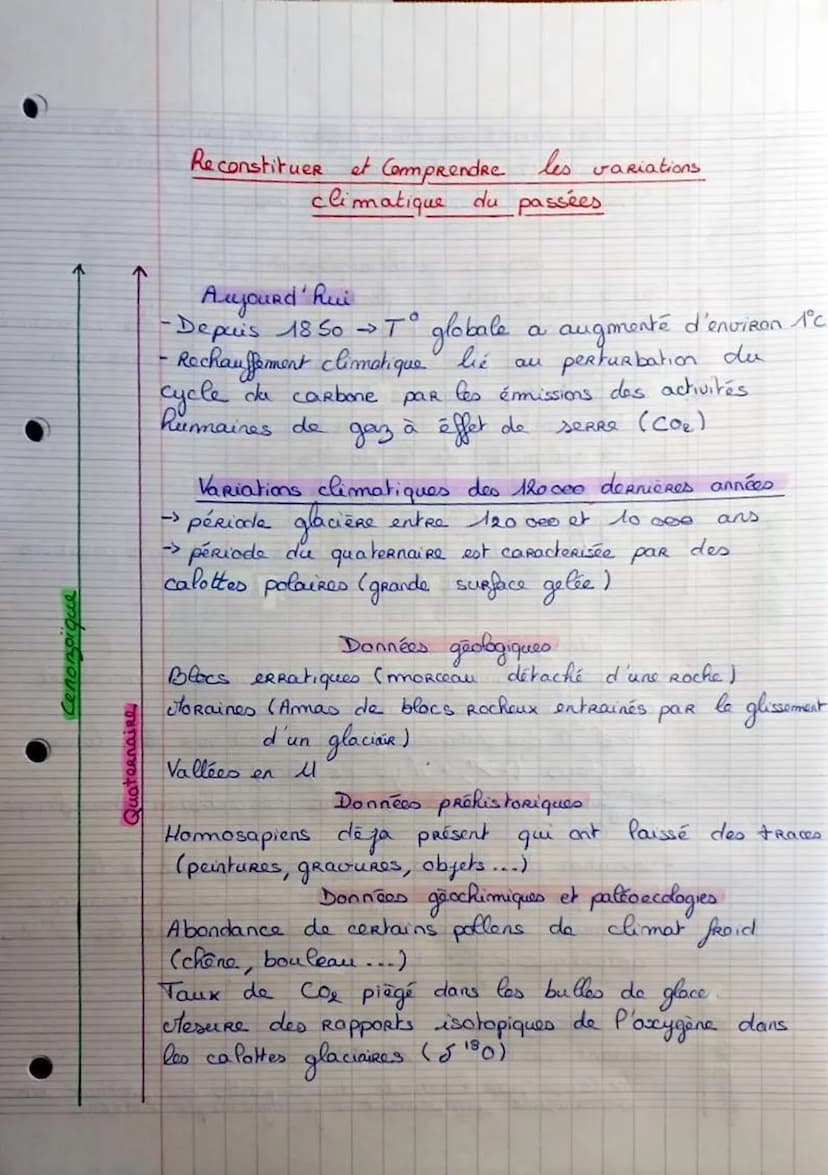 Reconstituer et Comprendre les variations
climatique du passées
Aujourd'hui
- Depuis 1850 → T° globale a augmenté d'environ 1°C
- Rechauffement climatique lié au perturbation du
cycle du carbone par les émissions des activités
humaines de gaz à éffet de serre (CO2)
Variations climatiques des 120 000 dernières années
→ période glacière entre 120 000 et 10 000 ans
→ période du quaternaire est caracterisée par des
calottes polaires (grande surface gelée)
Cenonzoïque
Quaternaire
Données géologiques
Blocs erratiques (morceau détaché d'une roche)
Moraines (Amas de blocs rocheux entrainés par le glissement
d'un glaciair)
Vallées en U
Données préhistoriques
Homosapiens déja présent qui ont laissé des traces
(peintures, gravures, objets...)
Données géochimiques et paléoecologies
Abondance de certains pollens de climat froid
(chêne, bouleau...)
Taux de CO2 piégé dans les bulles de glace.
Mesure des rapports isotopiques de l'oxygène dans
les calottes glaciaires (δ 18O)